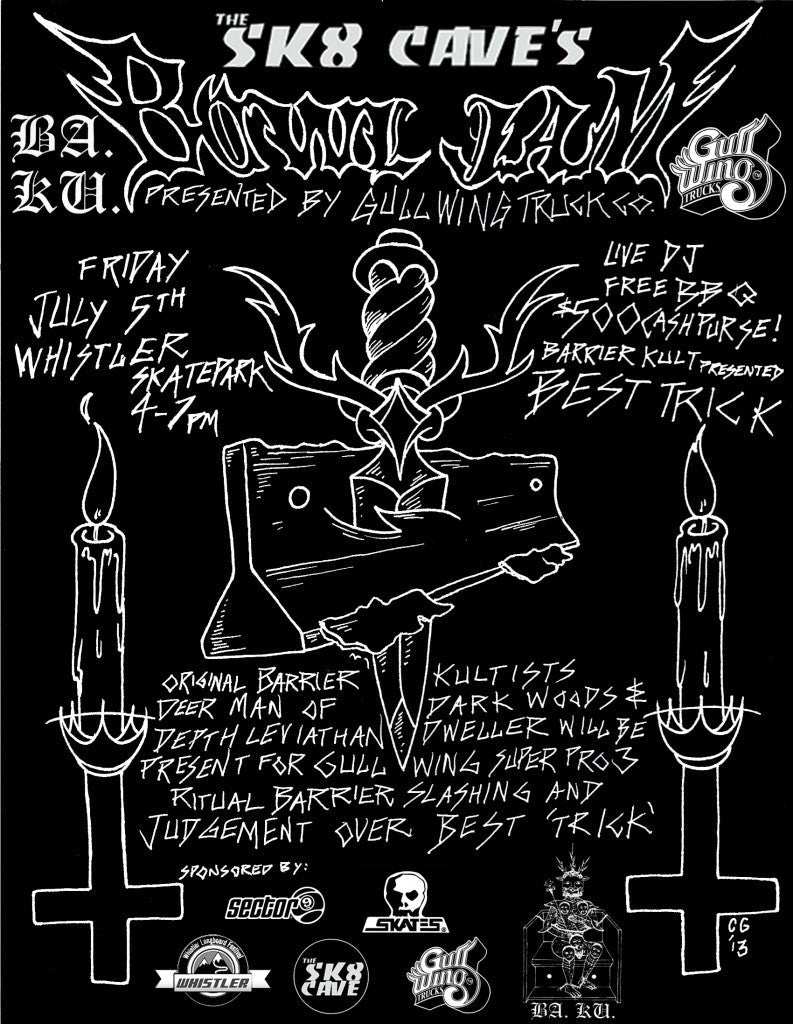 THE
SK8 CAVE'S
BOWL JAM
BA.
KU.
Gull
Wing
TRUCKS
PRESENTED BY GULLWING TRUCK CO.
FRIDAY
JULY 5TH
WHISTLER
SKATEPARK
4-7PM
LIVE DJ
FREE BBQ
$500 CASH PURSE!
BARRIER KULT PRESENTED
BEST TRICK
ORIGINAL BARRIER KULTISTS
DEER MAN OF DARK WOODS &
DEPTH LEVIATHAN DWELLER WILL BE
PRESENT FOR GULL WING SUPER PRO 3
RITUAL BARRIER SLASHING AND
JUDGEMENT OVER BEST 'TRICK'
SPONSORED BY:
sector 9
SKATES
CG
'13
Whistler Longboard Festival
WHISTLER
THE
SK8
CAVE
Gull
Wing
TRUCKS
BA. KU.